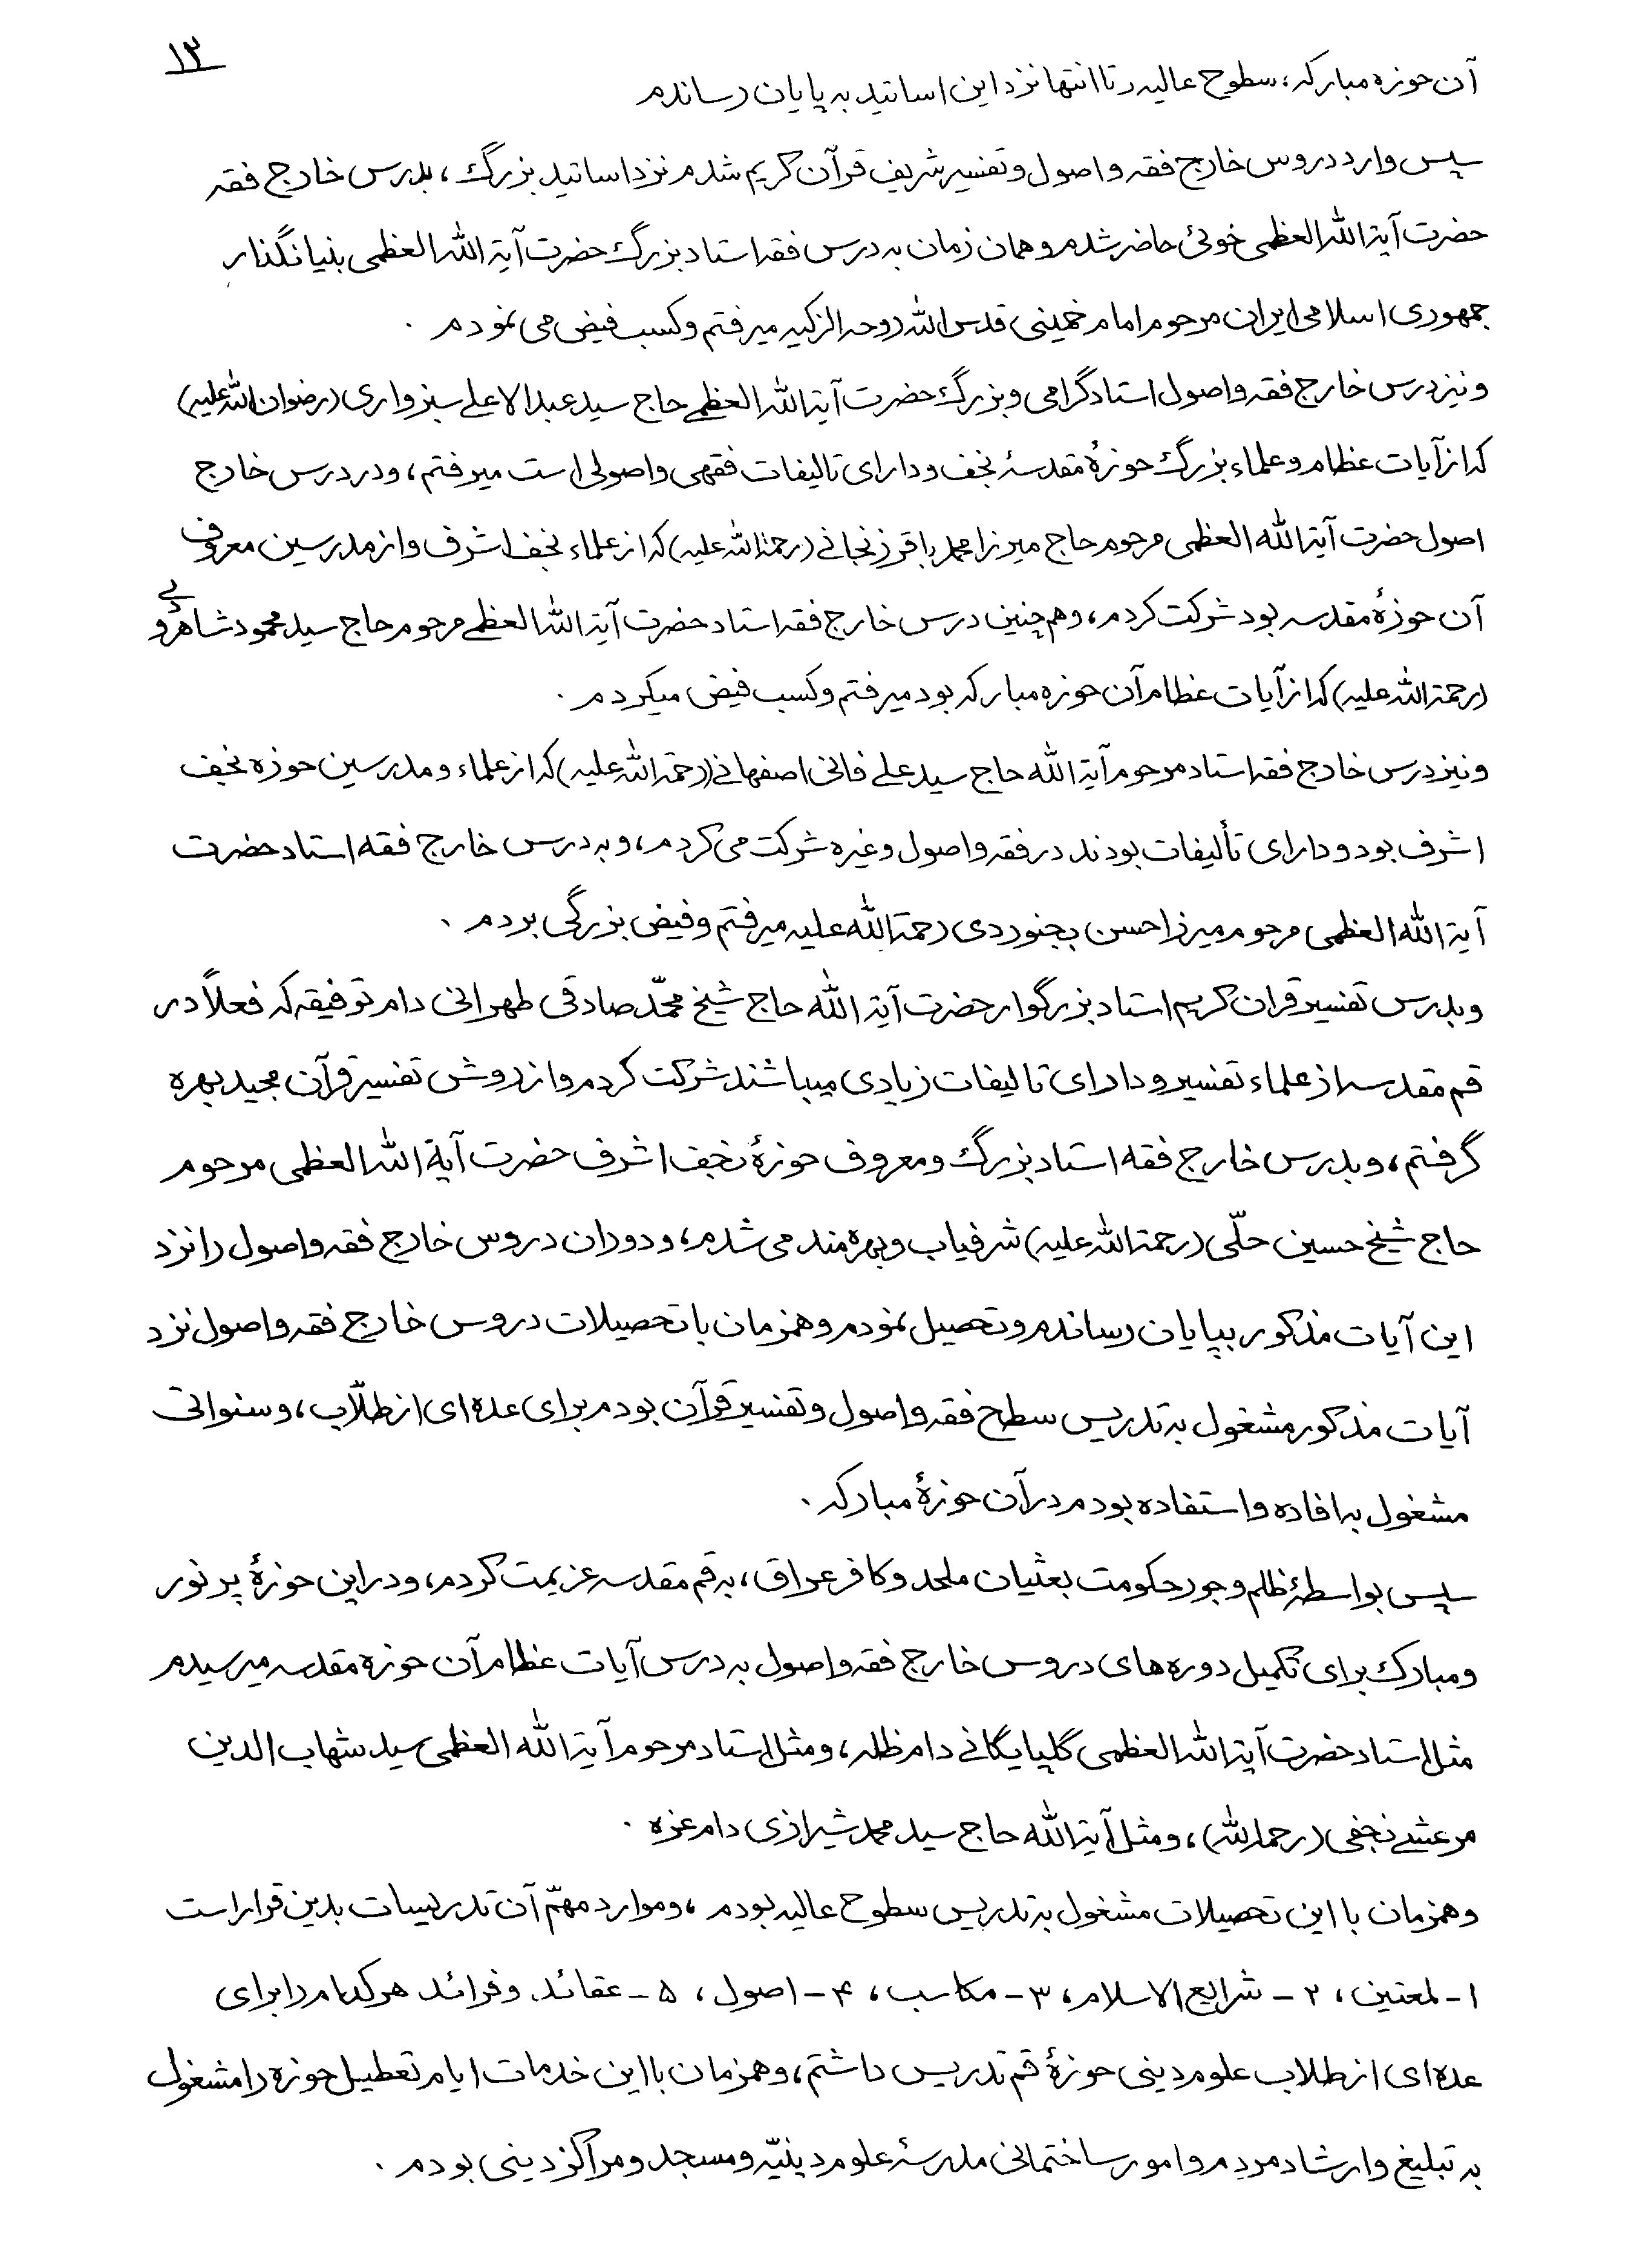 ۱۳
آن حوزه مبارکه؛ سطوح عالیه رتا انتها نزد این اساتید به پایان رساندم
سپس وارد دروس خارج فقه و اصول و تفسیر شریف قرآن کریم شدم نزد اساتید بزرگ، بدرس خارج فقه
حضرت آیة الله العظمی خوئی حاضر شدم و همان زمان به درس فقه استاد بزرگ حضرت آیة الله العظمی بنیانگذار
جمهوری اسلامی ایران مرحوم امام خمینی قدس الله روحه الزکیه میرفتم و کسب فیض می نمودم .
و نیز درس خارج فقه و اصول استاد گرامی و بزرگ حضرت آیة الله العظمی حاج سید عبد الاعلی سبزواری (رضوان الله علیه)
که از آیات عظام و علماء بزرگ حوزهٔ مقدسهٔ نجف و دارای تالیفات فقهی و اصولی است میرفتم، و در درس خارج
اصول حضرت آیة الله العظمی مرحوم حاج میرزا محمد باقر زنجانی (رحمة الله علیه) که از علماء نجف اشرف و از مدرسین معروف
آن حوزهٔ مقدسه بود شرکت کردم، و هم چنین درس خارج فقه استاد حضرت آیة الله العظمی مرحوم حاج سید محمود شاهرودی
(رحمة الله علیه) که از آیات عظام آن حوزه مبارکه بود میرفتم و کسب فیض میکردم .
و نیز درس خارج فقه استاد مرحوم آیة الله حاج سید علی فانی اصفهانی (رحمة الله علیه) که از علماء و مدرسین حوزه نجف
اشرف بود و دارای تألیفات بودند در فقه و اصول و غیره شرکت می کردم، و به درس خارج فقه استاد حضرت
آیة الله العظمی مرحوم میرزا حسن بجنوردی رحمة الله علیه میرفتم و فیض بزرگی بردم .
و بدرس تفسیر قران کریم استاد بزرگوار حضرت آیة الله حاج شیخ محمّد صادقی طهرانی دام توفیقه که فعلاً در
قم مقدسه از علماء تفسیر و دارای تالیفات زیادی میباشند شرکت کردم و از روش تفسیر قرآن مجید بهره
گرفتم، و بدرس خارج فقه استاد بزرگ و معروف حوزهٔ نجف اشرف حضرت آیة الله العظمی مرحوم
حاج شیخ حسین حلّی (رحمة الله علیه) شرفیاب و بهره مند می شدم، و دوران دروس خارج فقه و اصول را نزد
این آیات مذکور بپایان رساندم و تحصیل نمودم و همزمان با تحصیلات دروس خارج فقه و اصول نزد
آیات مذکور مشغول به تدریس سطح فقه و اصول و تفسیر قرآن بودم برای عده ای از طلّاب، و سنواتی
مشغول به افاده و استفاده بودم در آن حوزهٔ مبارکه .
سپس بواسطهٔ ظلم و جور حکومت بعثیان ملحد و کافر عراق، به قم مقدسه عزیمت کردم، و در این حوزهٔ پر نور
و مبارک برای تکمیل دوره های دروس خارج فقه و اصول به درس آیات عظام آن حوزه مقدسه میرسیدم
مثل استاد حضرت آیة الله العظمی گلپایگانی دام ظله، و مثل استاد مرحوم آیة الله العظمی سید شهاب الدین
مرعشی نجفی (رحمه الله)، و مثل آیة الله حاج سید محمد شیرازی دام عزه .
و همزمان با این تحصیلات مشغول به تدریس سطوح عالیه بودم، و موارد مهمّ آن تدریسات بدین قرار است
۱- لمعتین، ۲- شرایع الاسلام، ۳- مکاسب، ۴- اصول، ۵- عقائد. و فرائد هر کدام را برای
عده ای از طلاب علوم دینی حوزهٔ قم تدریس داشتم، و همزمان با این خدمات ایام تعطیل حوزه را مشغول
به تبلیغ و ارشاد مردم و امور ساختمانی مدرسهٔ علوم دینیّه و مسجد و مراکز دینی بودم .